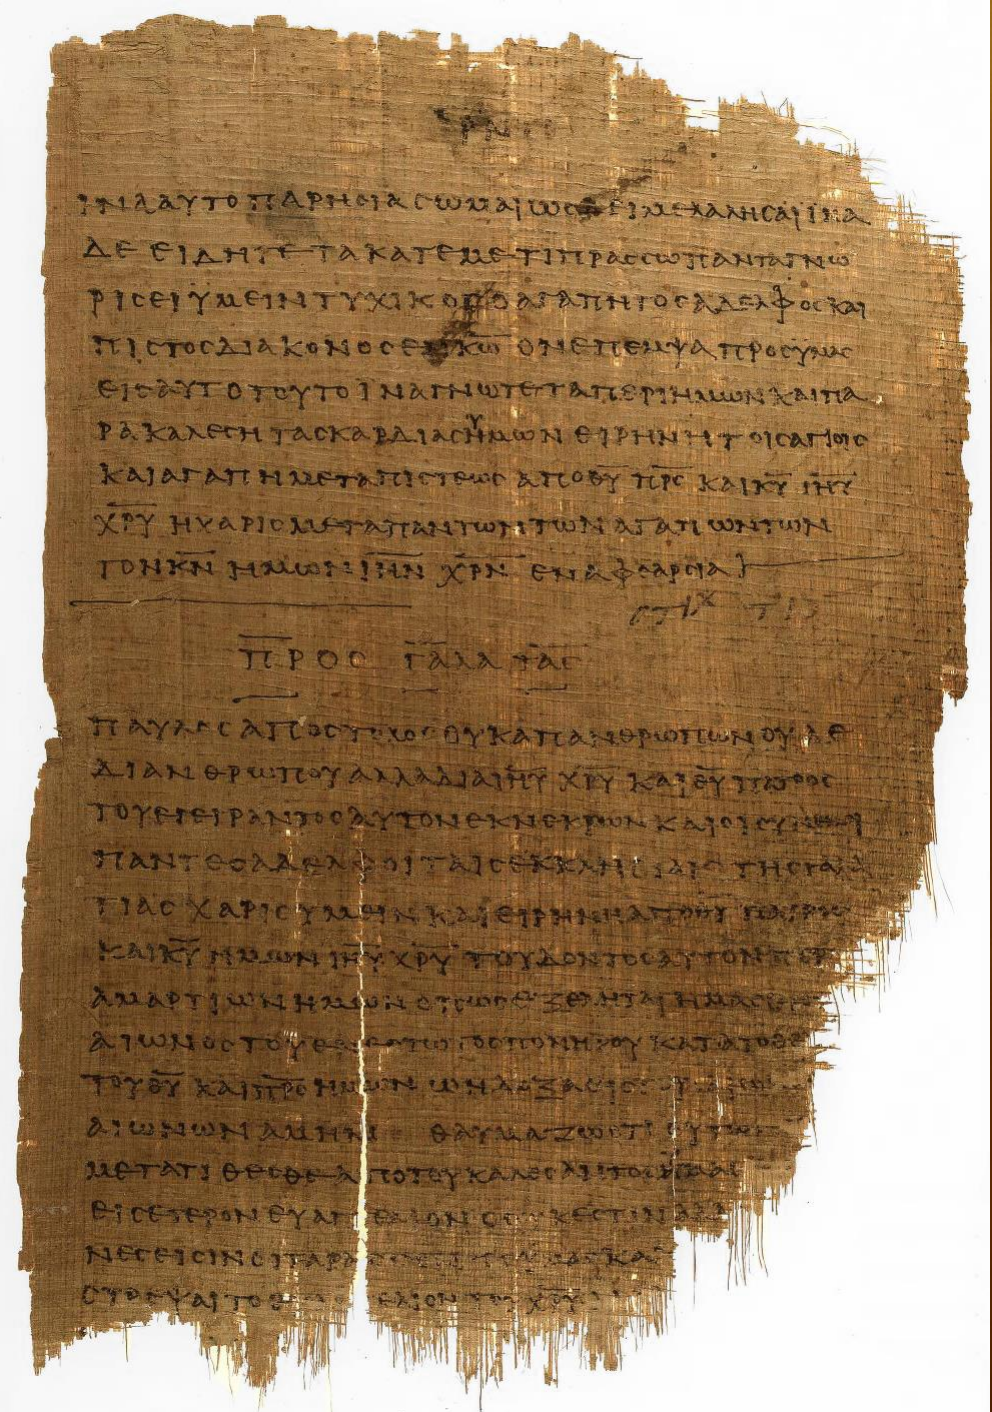 ΡΝΗ
ΙΝΑ ΑΥΤΟ ΠΑΡΗΣΙΑΣΩΜΑΙ ΩΣ ΔΕΙ ΜΕ ΛΑΛΗΣΑΙ ΙΝΑ
ΔΕ ΕΙΔΗΤΕ ΤΑ ΚΑΤ ΕΜΕ ΤΙ ΠΡΑΣΣΩ ΠΑΝΤΑ ΓΝΩ
ΡΙΣΕΙ ΥΜΕΙΝ ΤΥΧΙΚΟΣ Ο ΑΓΑΠΗΤΟΣ ΑΔΕΛΦΟΣ ΚΑΙ
ΠΙΣΤΟΣ ΔΙΑΚΟΝΟΣ ΕΝ Κ̅Ω̅ ΟΝ ΕΠΕΜΨΑ ΠΡΟΣ ΥΜΑΣ
ΕΙΣ ΑΥΤΟ ΤΟΥΤΟ ΙΝΑ ΓΝΩΤΕ ΤΑ ΠΕΡΙ ΗΜΩΝ ΚΑΙ ΠΑ
ΡΑΚΑΛΕΣΗ ΤΑΣ ΚΑΡΔΙΑΣ ΥΗΜΩΝ ΕΙΡΗΝΗ ΤΟΙΣ ΑΓΙΟΙΣ
ΚΑΙ ΑΓΑΠΗ ΜΕΤΑ ΠΙΣΤΕΩΣ ΑΠΟ Θ̅Υ̅ Π̅Ρ̅Σ̅ ΚΑΙ Κ̅Υ̅ Ι̅Η̅Υ̅
Χ̅Ρ̅Υ̅ Η ΧΑΡΙΣ ΜΕΤΑ ΠΑΝΤΩΝ ΤΩΝ ΑΓΑΠΩΝΤΩΝ
ΤΟΝ Κ̅Ν̅ ΗΜΩΝ Ι̅Η̅Ν̅ Χ̅Ρ̅Ν̅ ΕΝ ΑΦΘΑΡΣΙΑ
ΣΤΙΧ ΤΙ
ΠΡΟΣ ΓΑΛΑΤΑΣ
ΠΑΥΛΟΣ ΑΠΟΣΤΟΛΟΣ ΟΥΚ ΑΠ ΑΝΘΡΩΠΩΝ ΟΥΔΕ
ΔΙ ΑΝΘΡΩΠΟΥ ΑΛΛΑ ΔΙΑ Ι̅Η̅Υ̅ Χ̅Ρ̅Υ̅ ΚΑΙ Θ̅Υ̅ ΠΑΤΡΟΣ
ΤΟΥ ΕΓΕΙΡΑΝΤΟΣ ΑΥΤΟΝ ΕΚ ΝΕΚΡΩΝ ΚΑΙ ΟΙ ΣΥΝ ΕΜΟΙ
ΠΑΝΤΕΣ ΑΔΕΛΦΟΙ ΤΑΙΣ ΕΚΚΛΗΣΙΑΙΣ ΤΗΣ ΓΑΛΑ
ΤΙΑΣ ΧΑΡΙΣ ΥΜΕΙΝ ΚΑΙ ΕΙΡΗΝΗ ΑΠΟ Θ̅Υ̅ ΠΑΤΡΟΣ
ΚΑΙ Κ̅Υ̅ ΗΜΩΝ Ι̅Η̅Υ̅ Χ̅Ρ̅Υ̅ ΤΟΥ ΔΟΝΤΟΣ ΑΥΤΟΝ ΠΕΡ
ΑΜΑΡΤΙΩΝ ΗΜΩΝ ΟΠΩΣ ΕΞΕΛΗΤΑΙ ΗΜΑΣ
ΑΙΩΝΟΣ ΤΟΥ ΕΝΕΣΤΩΤΟΣ ΠΟΝΗΡΟΥ ΚΑΤΑ ΤΟ ΘΕ
ΤΟΥ Θ̅Υ̅ ΚΑΙ Π̅Ρ̅Σ̅ ΗΜΩΝ Ω Η ΔΟΞΑ ΕΙΣ ΤΟΥΣ
ΑΙΩΝΩΝ ΑΜΗΝ ΘΑΥΜΑΖΩ ΟΤΙ ΟΥΤΩΣ
ΜΕΤΑΤΙΘΕΣΘΕ ΑΠΟ ΤΟΥ ΚΑΛΕΣΑΝΤΟΣ ΥΜΑΣ
ΕΙΣ ΕΤΕΡΟΝ ΕΥΑΓΓΕΛΙΟΝ Ο ΟΥΚ ΕΣΤΙΝ ΑΛΛ
ΝΕΣ ΕΙΣΙΝ ΟΙ ΤΑΡΑΣΣΟΝΤΕΣ ΥΜΑΣ ΚΑΙ
ΣΤΡΕΨΑΙ ΤΟ ΕΥΑΓΓΕΛΙΟΝ ΤΟΥ Χ̅Ρ̅Υ̅